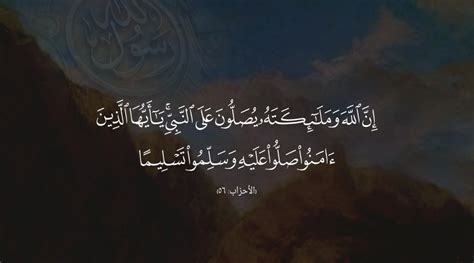 إِنَّ ٱللَّهَ وَمَلَـٰٓئِكَتَهُۥ يُصَلُّونَ عَلَى ٱلنَّبِيِّ ۚ يَـٰٓأَيُّهَا ٱلَّذِينَ
ءَامَنُوا۟ صَلُّوا۟ عَلَيْهِ وَسَلِّمُوا۟ تَسْلِيمًا
(الأحزاب: ٥٦)